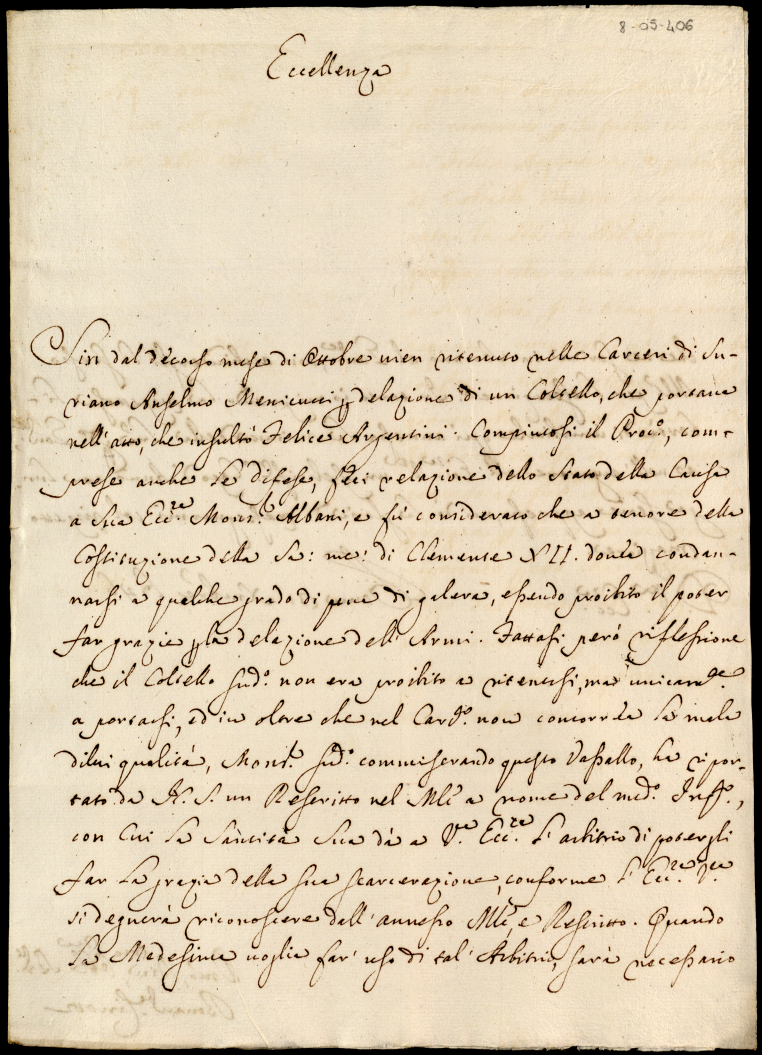 8-05-406
Eccellenza
Sin dal decorso mese di Ottobre vien ritenuto nelle Carceri di Su-
riano Anselmo Menicucci p delazione di un Coltello, che portava
nell'atto, che insultò Felice Argentini. Compiutosi il Proc.o, com-
prese anche le difese, feci relazione dello Stato della Causa
a Sua Ecc.za Mons.r Albani, e fù considerato che a tenore della
Costituzione della Sa: me: di Clemente XII. dovea condan-
narsi a qualche grado di pena di galera, essendo proibito il poter
far grazie p la delazione dell'Armi. Fattasi però riflessione
che il Coltello sud.o non era proibito a ritenersi, ma unicam.te
a portarsi, ed in oltre che nel Carc.o non concorrea la mala
di lui qualità, Mons.r sud.o commiserando questo Vassallo, ha ripor-
tato da N. S. un Rescritto nel Mle a nome del med.o Inq.o,
con Cui la Santità Sua dà a V.a Ecc.za l'arbitrio di potergli
far la grazia della sua scarcerazione, conforme l'Ecc.za V.ra
si degnerà riconoscere dall'annesso Mle, e Rescritto. Quando
la Medesima voglia far'uso di tal'Arbitrio, sarà necessario